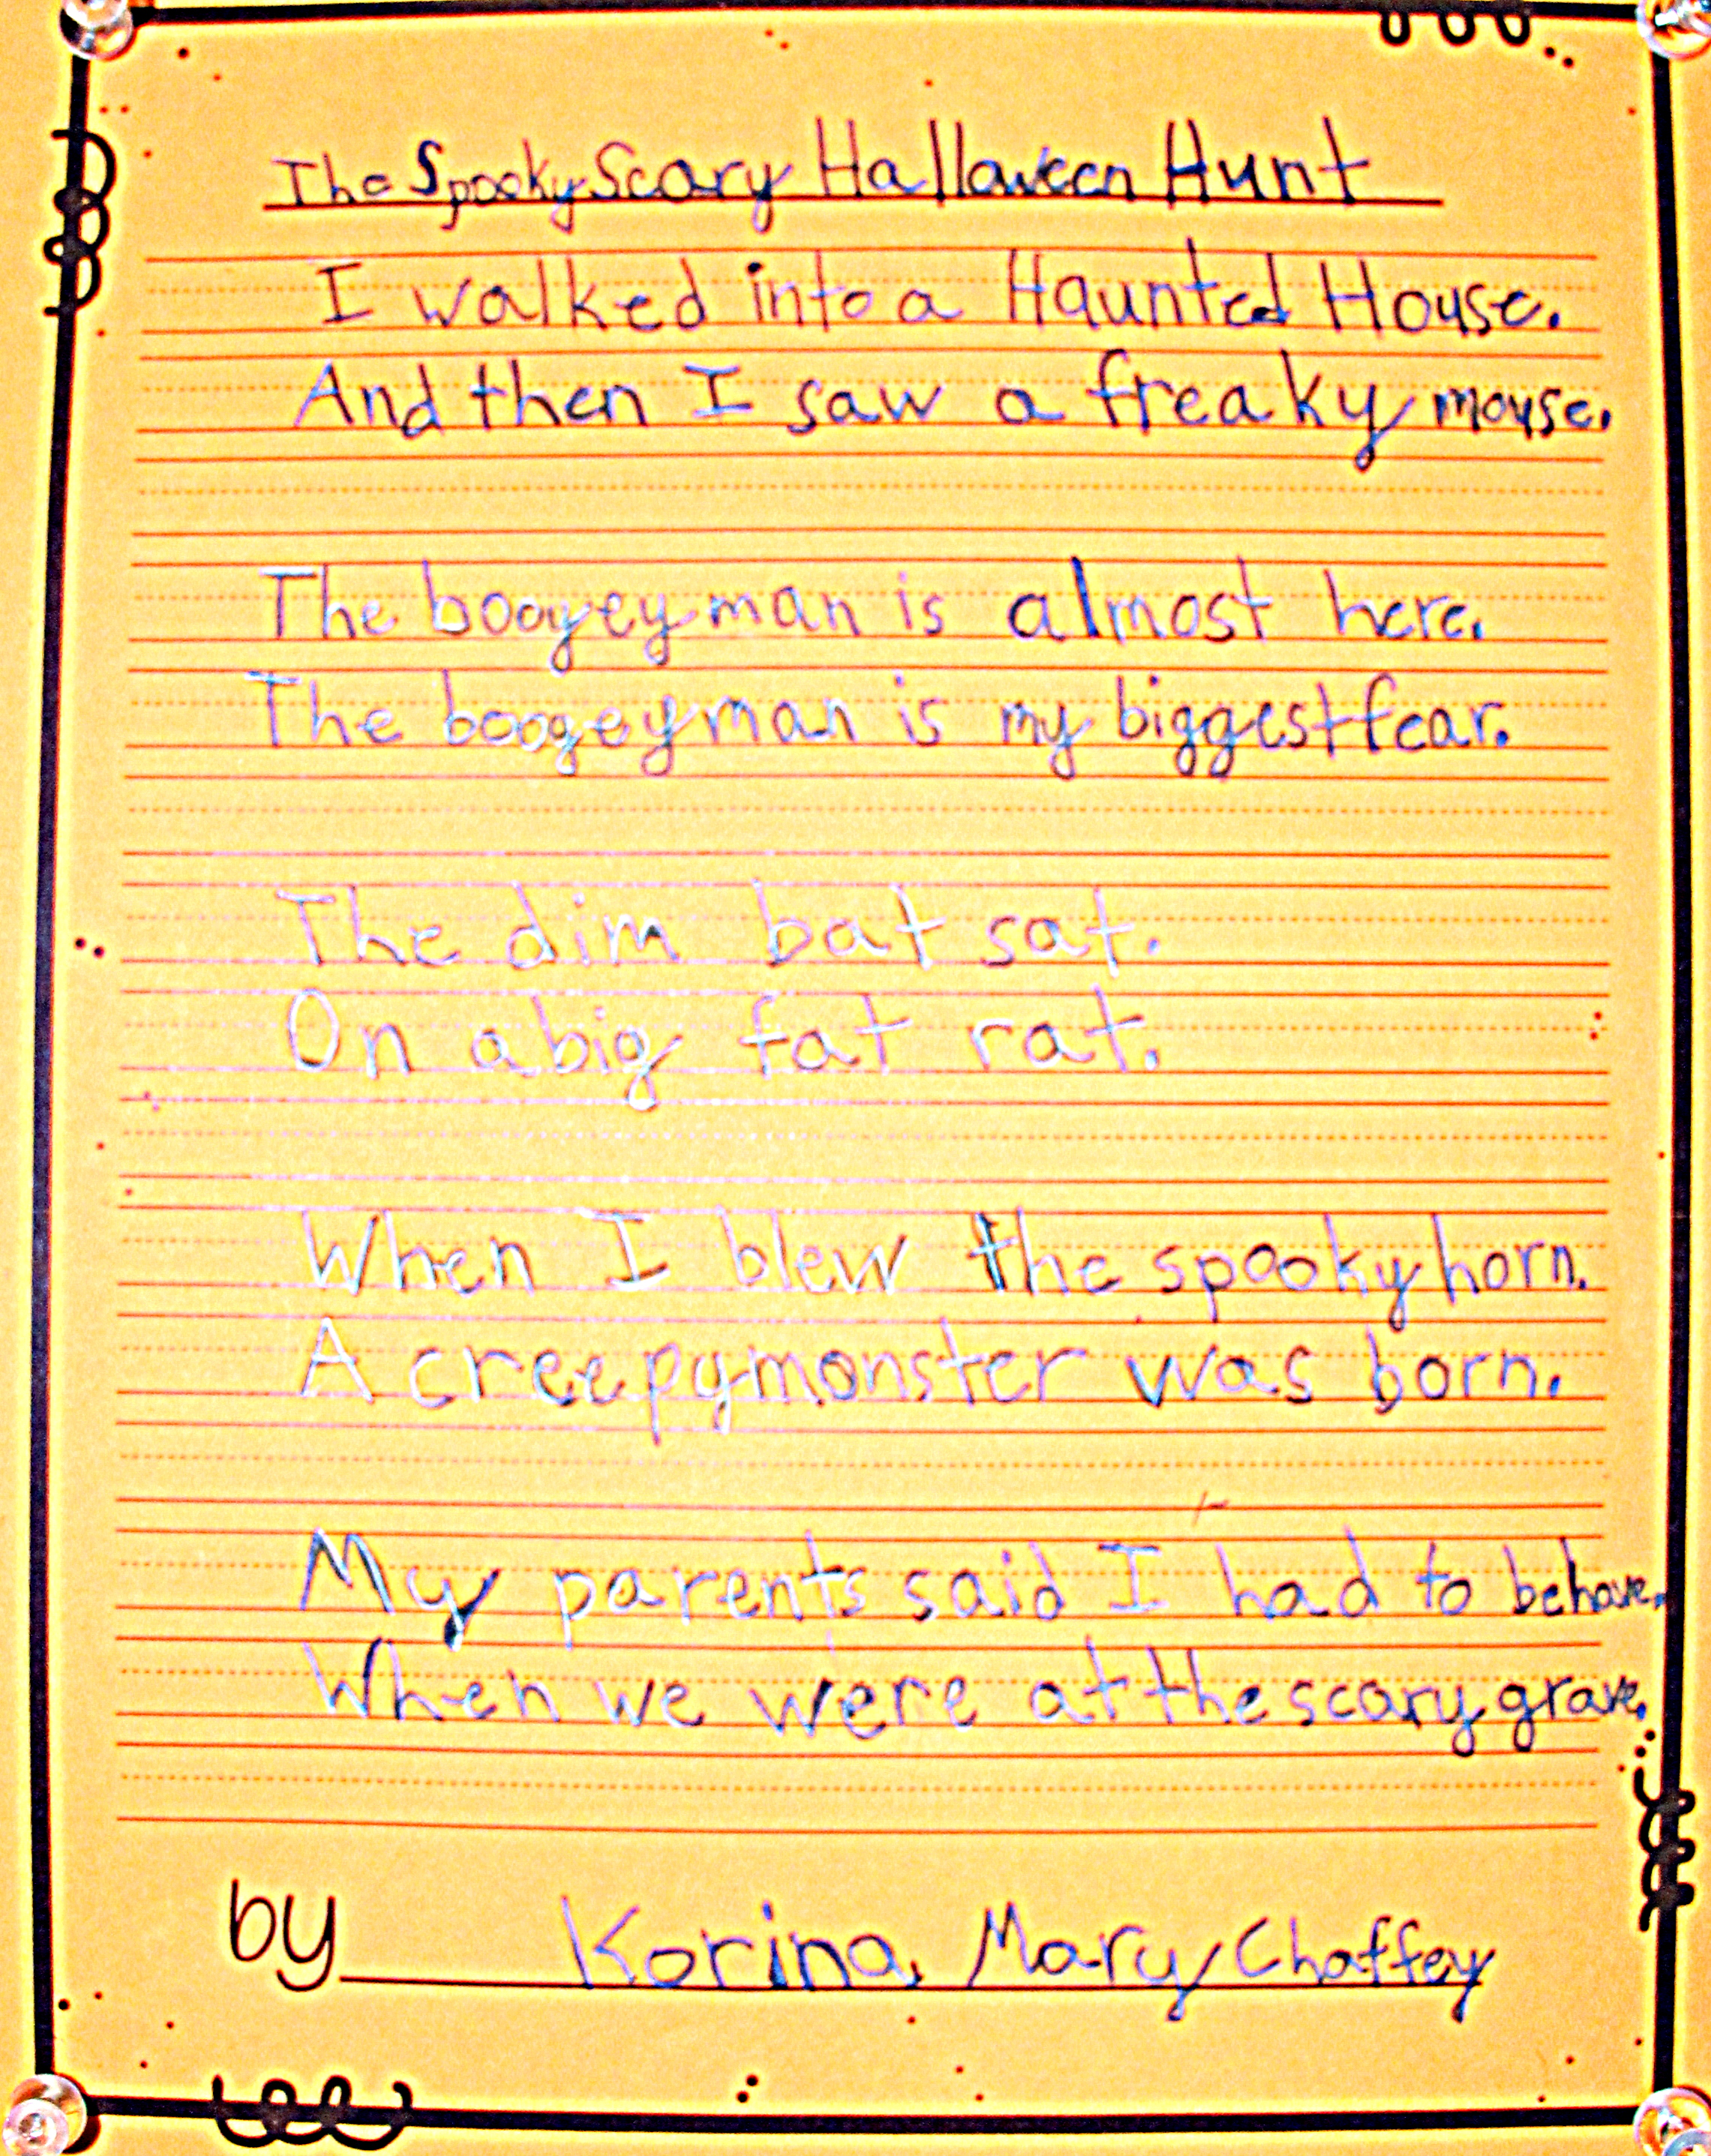 The Spooky Scary Halloween Hunt
I walked into a Haunted House.
And then I saw a freaky mouse.
The boogeyman is almost here.
The boogeyman is my biggest fear.
The dim bat sat.
On a big fat rat.
When I blew the spooky horn.
A creepy monster was born.
My parents said I had to behave.
When we were at the scary grave.
by Korina, Mary Chaffey